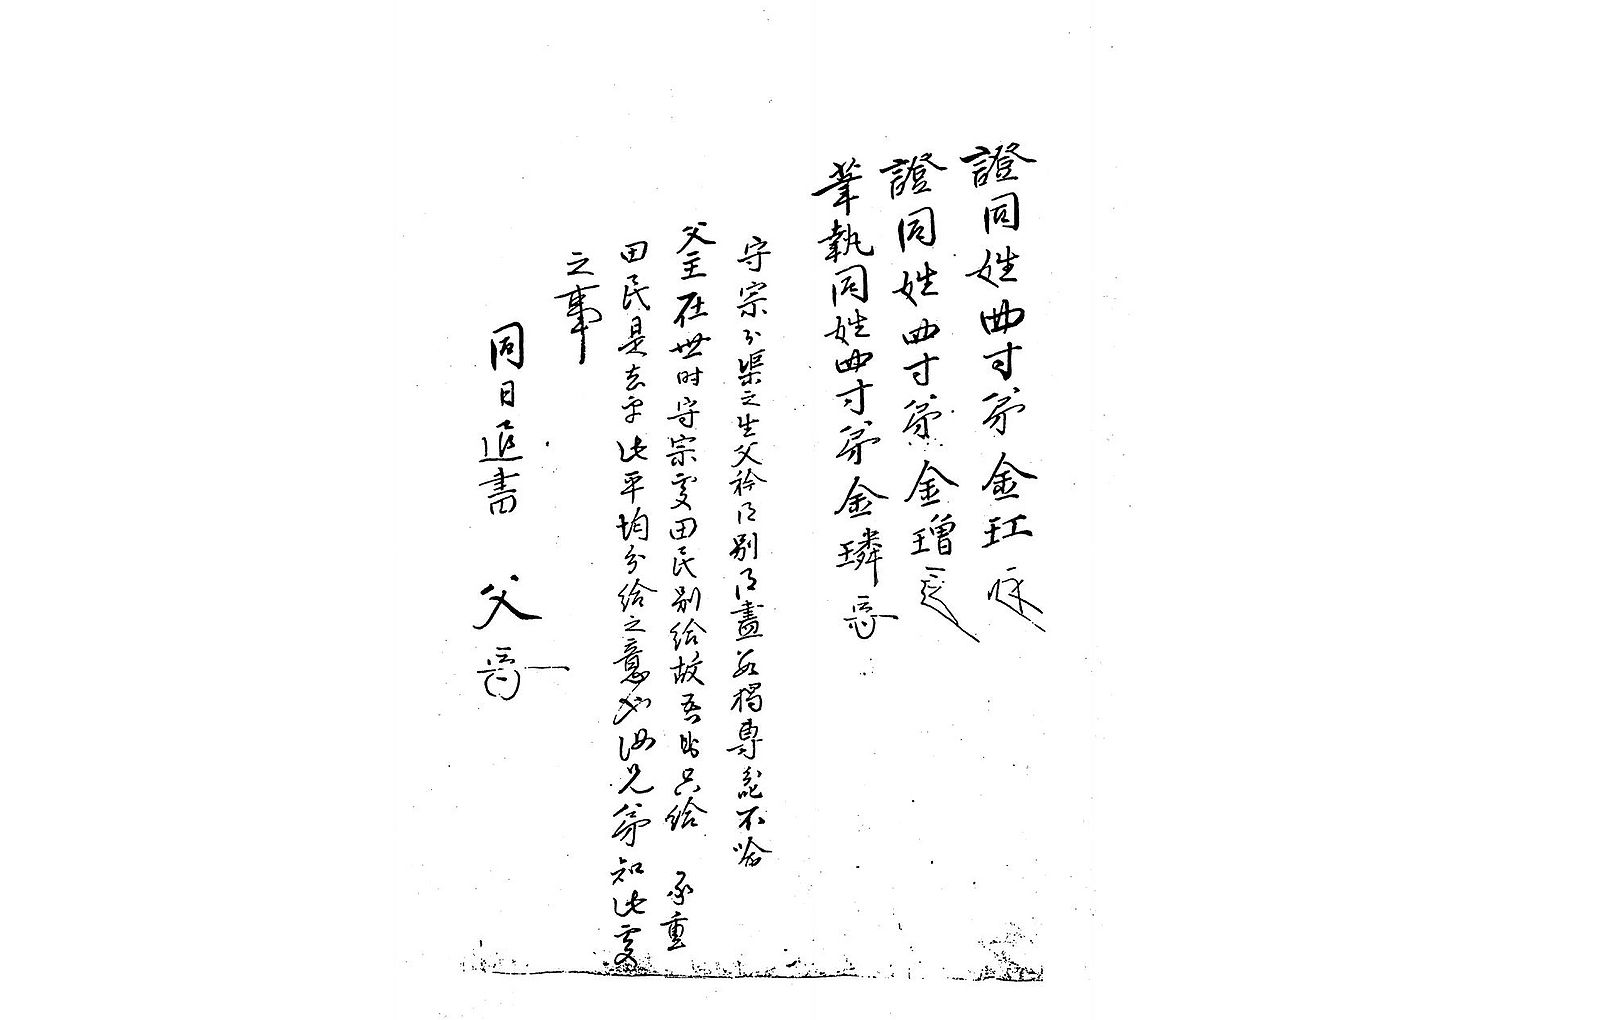 證同姓四寸弟金玒
證同姓四寸弟金璔
筆執同姓四寸弟金璘
守宗分渠之生父衿得別得盡數獨專 不喻
父主在世時守宗處田民別給故吾 只給 承重
田民是去乎此平均分給之意汝兄弟知此處
之事
同日追書 父